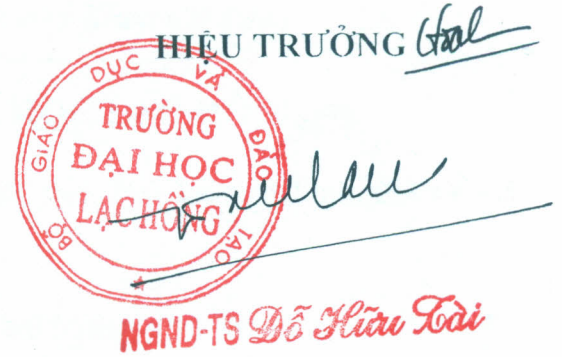 HIỆU TRƯỞNG
BỘ GIÁO DỤC VÀ ĐÀO TẠO
TRƯỜNG
ĐẠI HỌC
LẠC HỒNG
NGND-TS Đỗ Hữu Tài